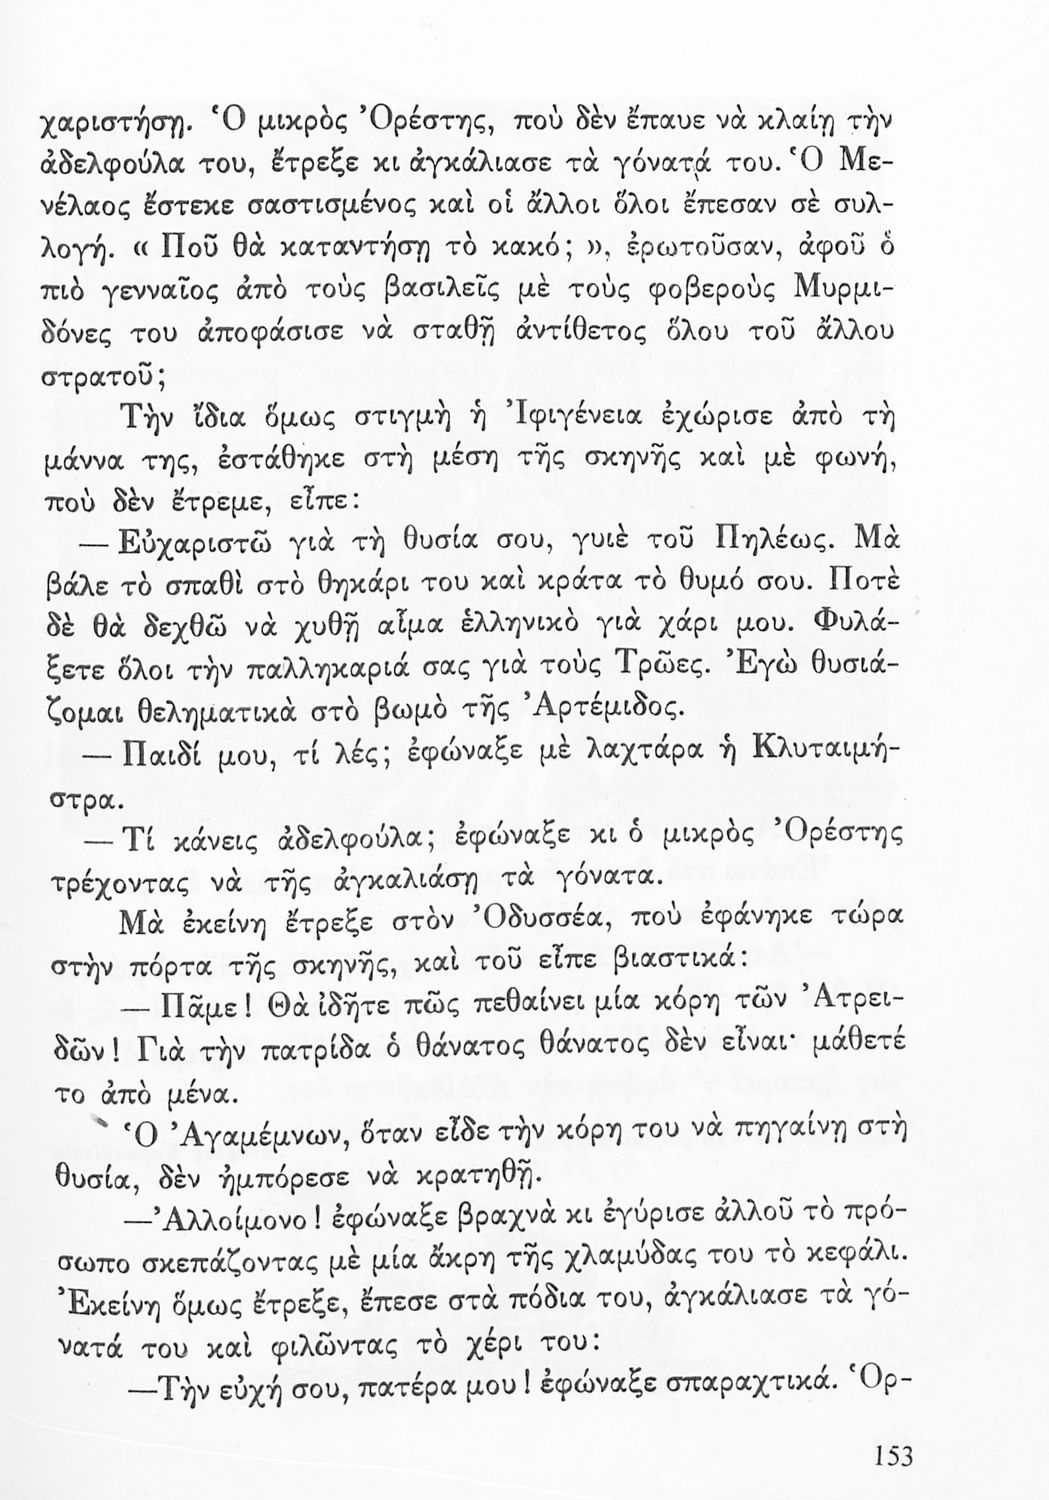 χαριστήσῃ. Ὁ μικρὸς Ὀρέστης, ποὺ δὲν ἔπαυε νὰ κλαίῃ τὴν
ἀδελφούλα του, ἔτρεξε κι ἀγκάλιασε τὰ γόνατά του. Ὁ Με-
νέλαος ἔστεκε σαστισμένος καὶ οἱ ἄλλοι ὅλοι ἔπεσαν σὲ συλ-
λογή. « Ποῦ θὰ καταντήσῃ τὸ κακό; », ἐρωτοῦσαν, ἀφοῦ ὁ
πιὸ γενναῖος ἀπὸ τοὺς βασιλεῖς μὲ τοὺς φοβεροὺς Μυρμι-
δόνες του ἀποφάσισε νὰ σταθῇ ἀντίθετος ὅλου τοῦ ἄλλου
στρατοῦ;
Τὴν ἴδια ὅμως στιγμὴ ἡ Ἰφιγένεια ἐχώρισε ἀπὸ τὴ
μάννα της, ἐστάθηκε στὴ μέση τῆς σκηνῆς καὶ μὲ φωνή,
ποὺ δὲν ἔτρεμε, εἶπε:
— Εὐχαριστῶ γιὰ τὴ θυσία σου, γυιὲ τοῦ Πηλέως. Μὰ
βάλε τὸ σπαθὶ στὸ θηκάρι του καὶ κράτα τὸ θυμό σου. Ποτὲ
δὲ θὰ δεχθῶ νὰ χυθῇ αἷμα ἑλληνικὸ γιὰ χάρι μου. Φυλά-
ξετε ὅλοι τὴν παλληκαριά σας γιὰ τοὺς Τρῶες. Ἐγὼ θυσιά-
ζομαι θεληματικὰ στὸ βωμὸ τῆς Ἀρτέμιδος.
— Παιδί μου, τί λές; ἐφώναξε μὲ λαχτάρα ἡ Κλυταιμή-
στρα.
— Τί κάνεις ἀδελφούλα; ἐφώναξε κι ὁ μικρὸς Ὀρέστης
τρέχοντας νὰ τῆς ἀγκαλιάσῃ τὰ γόνατα.
Μὰ ἐκείνη ἔτρεξε στὸν Ὀδυσσέα, ποὺ ἐφάνηκε τώρα
στὴν πόρτα τῆς σκηνῆς, καὶ τοῦ εἶπε βιαστικά:
— Πᾶμε! Θὰ ἰδῆτε πῶς πεθαίνει μία κόρη τῶν Ἀτρει-
δῶν! Γιὰ τὴν πατρίδα ὁ θάνατος θάνατος δὲν εἶναι· μάθετέ
το ἀπὸ μένα.
Ὁ Ἀγαμέμνων, ὅταν εἶδε τὴν κόρη του νὰ πηγαίνῃ στὴ
θυσία, δὲν ἠμπόρεσε νὰ κρατηθῇ.
—Ἀλλοίμονο! ἐφώναξε βραχνὰ κι ἐγύρισε ἀλλοῦ τὸ πρό-
σωπο σκεπάζοντας μὲ μία ἄκρη τῆς χλαμύδας του τὸ κεφάλι.
Ἐκείνη ὅμως ἔτρεξε, ἔπεσε στὰ πόδια του, ἀγκάλιασε τὰ γό-
νατά του καὶ φιλῶντας τὸ χέρι του:
—Τὴν εὐχή σου, πατέρα μου! ἐφώναξε σπαραχτικά. Ὁρ-
153